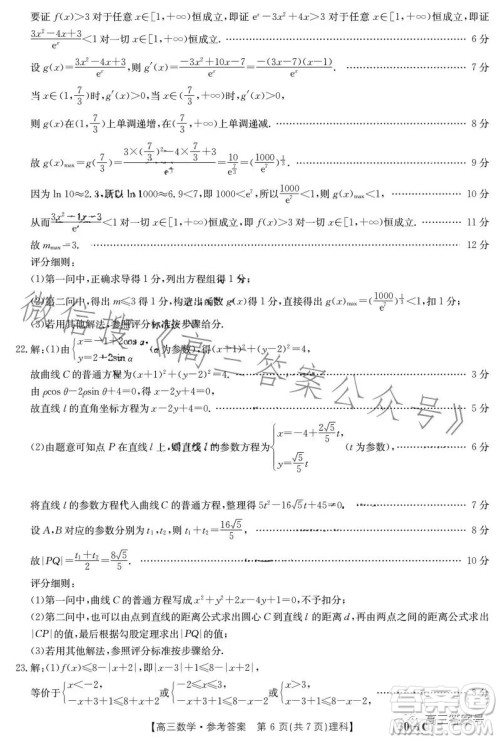 要证 f(x)>3 对于任意 x∈[1,+∞)恒成立,即证 e^x>3x²-4x+3 对于任意 x∈[1,+∞)恒成立,即证
(3x²-4x+3)/e^x<1 对一切 x∈[1,+∞)恒成立. …… 6 分
设 g(x)=(3x²-4x+3)/e^x,则 g′(x)=(-3x²+10x-7)/e^x=(-(3x-7)(x-1))/e^x. …… 7 分
当 x∈(1,7/3)时,g′(x)>0,当 x∈(7/3,+∞)时,g′(x)<0,
则 g(x)在(1,7/3)上单调递增,在(7/3,+∞)上单调递减. …… 8 分
故 g(x)max=g(7/3)=(3×(7/3)²-4×7/3+3)/e^(7/3)=10/e^(7/3)=(1000/e^7)^(1/3). …… 9 分
因为 ln 10≈2.3,所以 ln 1000≈6.9<7,即 1000<e^7,所以(1000/e^7)^(1/3)<1,则 g(x)<1, …… 10 分
从而(3x²-4x+3)/e^x<1 对一切 x∈[1,+∞)恒成立,即 f(x)>3 对一切 x∈[1,+∞)恒成立. …… 11 分
故 mmax=3. …… 12 分
评分细则:
(1)第一问中,正确求导得 1 分,列出方程组得 1 分;
(2)第二问中,得出 m≤3 得 1 分,构造出函数 g(x),但没有得出 g(x)max=(1000/e^7)^(1/3)<1,扣 1 分;
(3)若用其他解法,参照评分标准按步骤给分.
22.解:(1)由{x=-1+2cos α, y=2+2sin α (α 为参数),得(x+1)²+(y-2)²=4,
故曲线 C 的普通方程为(x+1)²+(y-2)²=4. …… 3 分
由 ρcos θ-2ρsin θ+4=0,得 x-2y+4=0,
故直线 l 的直角坐标方程为 x-2y+4=0. …… 5 分
(2)由题意可知点 P 在直线 l 上,则直线 l 的参数方程为{x=-4+(2√5/5)t, y=(√5/5)t (t 为参数), …… 6 分
将直线 l 的参数方程代入曲线 C 的普通方程,整理得 5t²-16√5t+45=0. …… 7 分
设 A,B 对应的参数分别为 t₁,t₂,则 t₁+t₂=16√5/5, …… 8 分
故|PQ|=|(t₁+t₂)/2|=8√5/5. …… 10 分
评分细则:
(1)第一问中,曲线 C 的普通方程写成 x²+y²+2x-4y+1=0,不予扣分;
(2)第二问中,也可以由点到直线的距离公式求出圆心 Q 到直线 l 的距离 d,再由两点之间的距离公式求出
|CP|的值,最后由勾股定理求出|PQ|的值;
(3)若用其他解法,参照评分标准按步骤给分.
23.解:(1)f(x)≤8-|x+2|,即|x-3|+1≤8-|x+2|,
等价于{x<-2, -x+3+1≤8+x+2 或{-2≤x≤3, -x+3+1≤8-x-2 或{x>3, x-3+1≤8-x-2, …… 3 分
【高三数学·参考答案 第 6 页(共 7 页)理科】
微信搜《高三答案公众号》